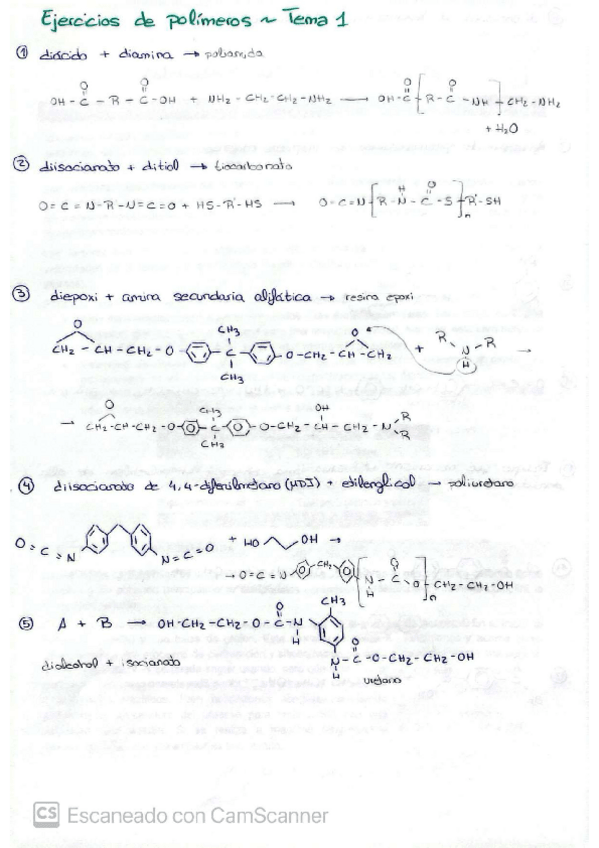 Ejercicios de polímeros ~ Tema 1
① diácido + diamina → poliamida
OH - C - R - C - OH + NH2 - CH2 - CH2 - NH2 → OH - C [ R - C - NH ] CH2 - NH2
+ H2O
② diisocianato + ditiol → tiocarbonato
O = C = N - R - N = C = O + HS - R' - HS → O - C = N [ R - N - C - S ]n R' - SH
③ diepoxi + amina secundaria alifática → resina epoxi
O CH3 O
CH2 - CH - CH2 - O - C - O - CH2 - CH - CH2 + R N R →
CH3 H
O CH3 OH
→ CH2 - CH - CH2 - O - C - O - CH2 - CH - CH2 - N R R
CH3
④ diisocianato de 4,4-difenilmetano (MDI) + etilenglicol → poliuretano
O = C = N N = C = O + HO OH →
→ O = C = N CH2 [ N - C - O ]n CH2 - CH2 - OH
H O
⑤ A + B → OH - CH2 - CH2 - O - C - N CH3
H
dialcohol + isocianato
N - C - O - CH2 - CH2 - OH
H
uretano
CS Escaneado con CamScanner